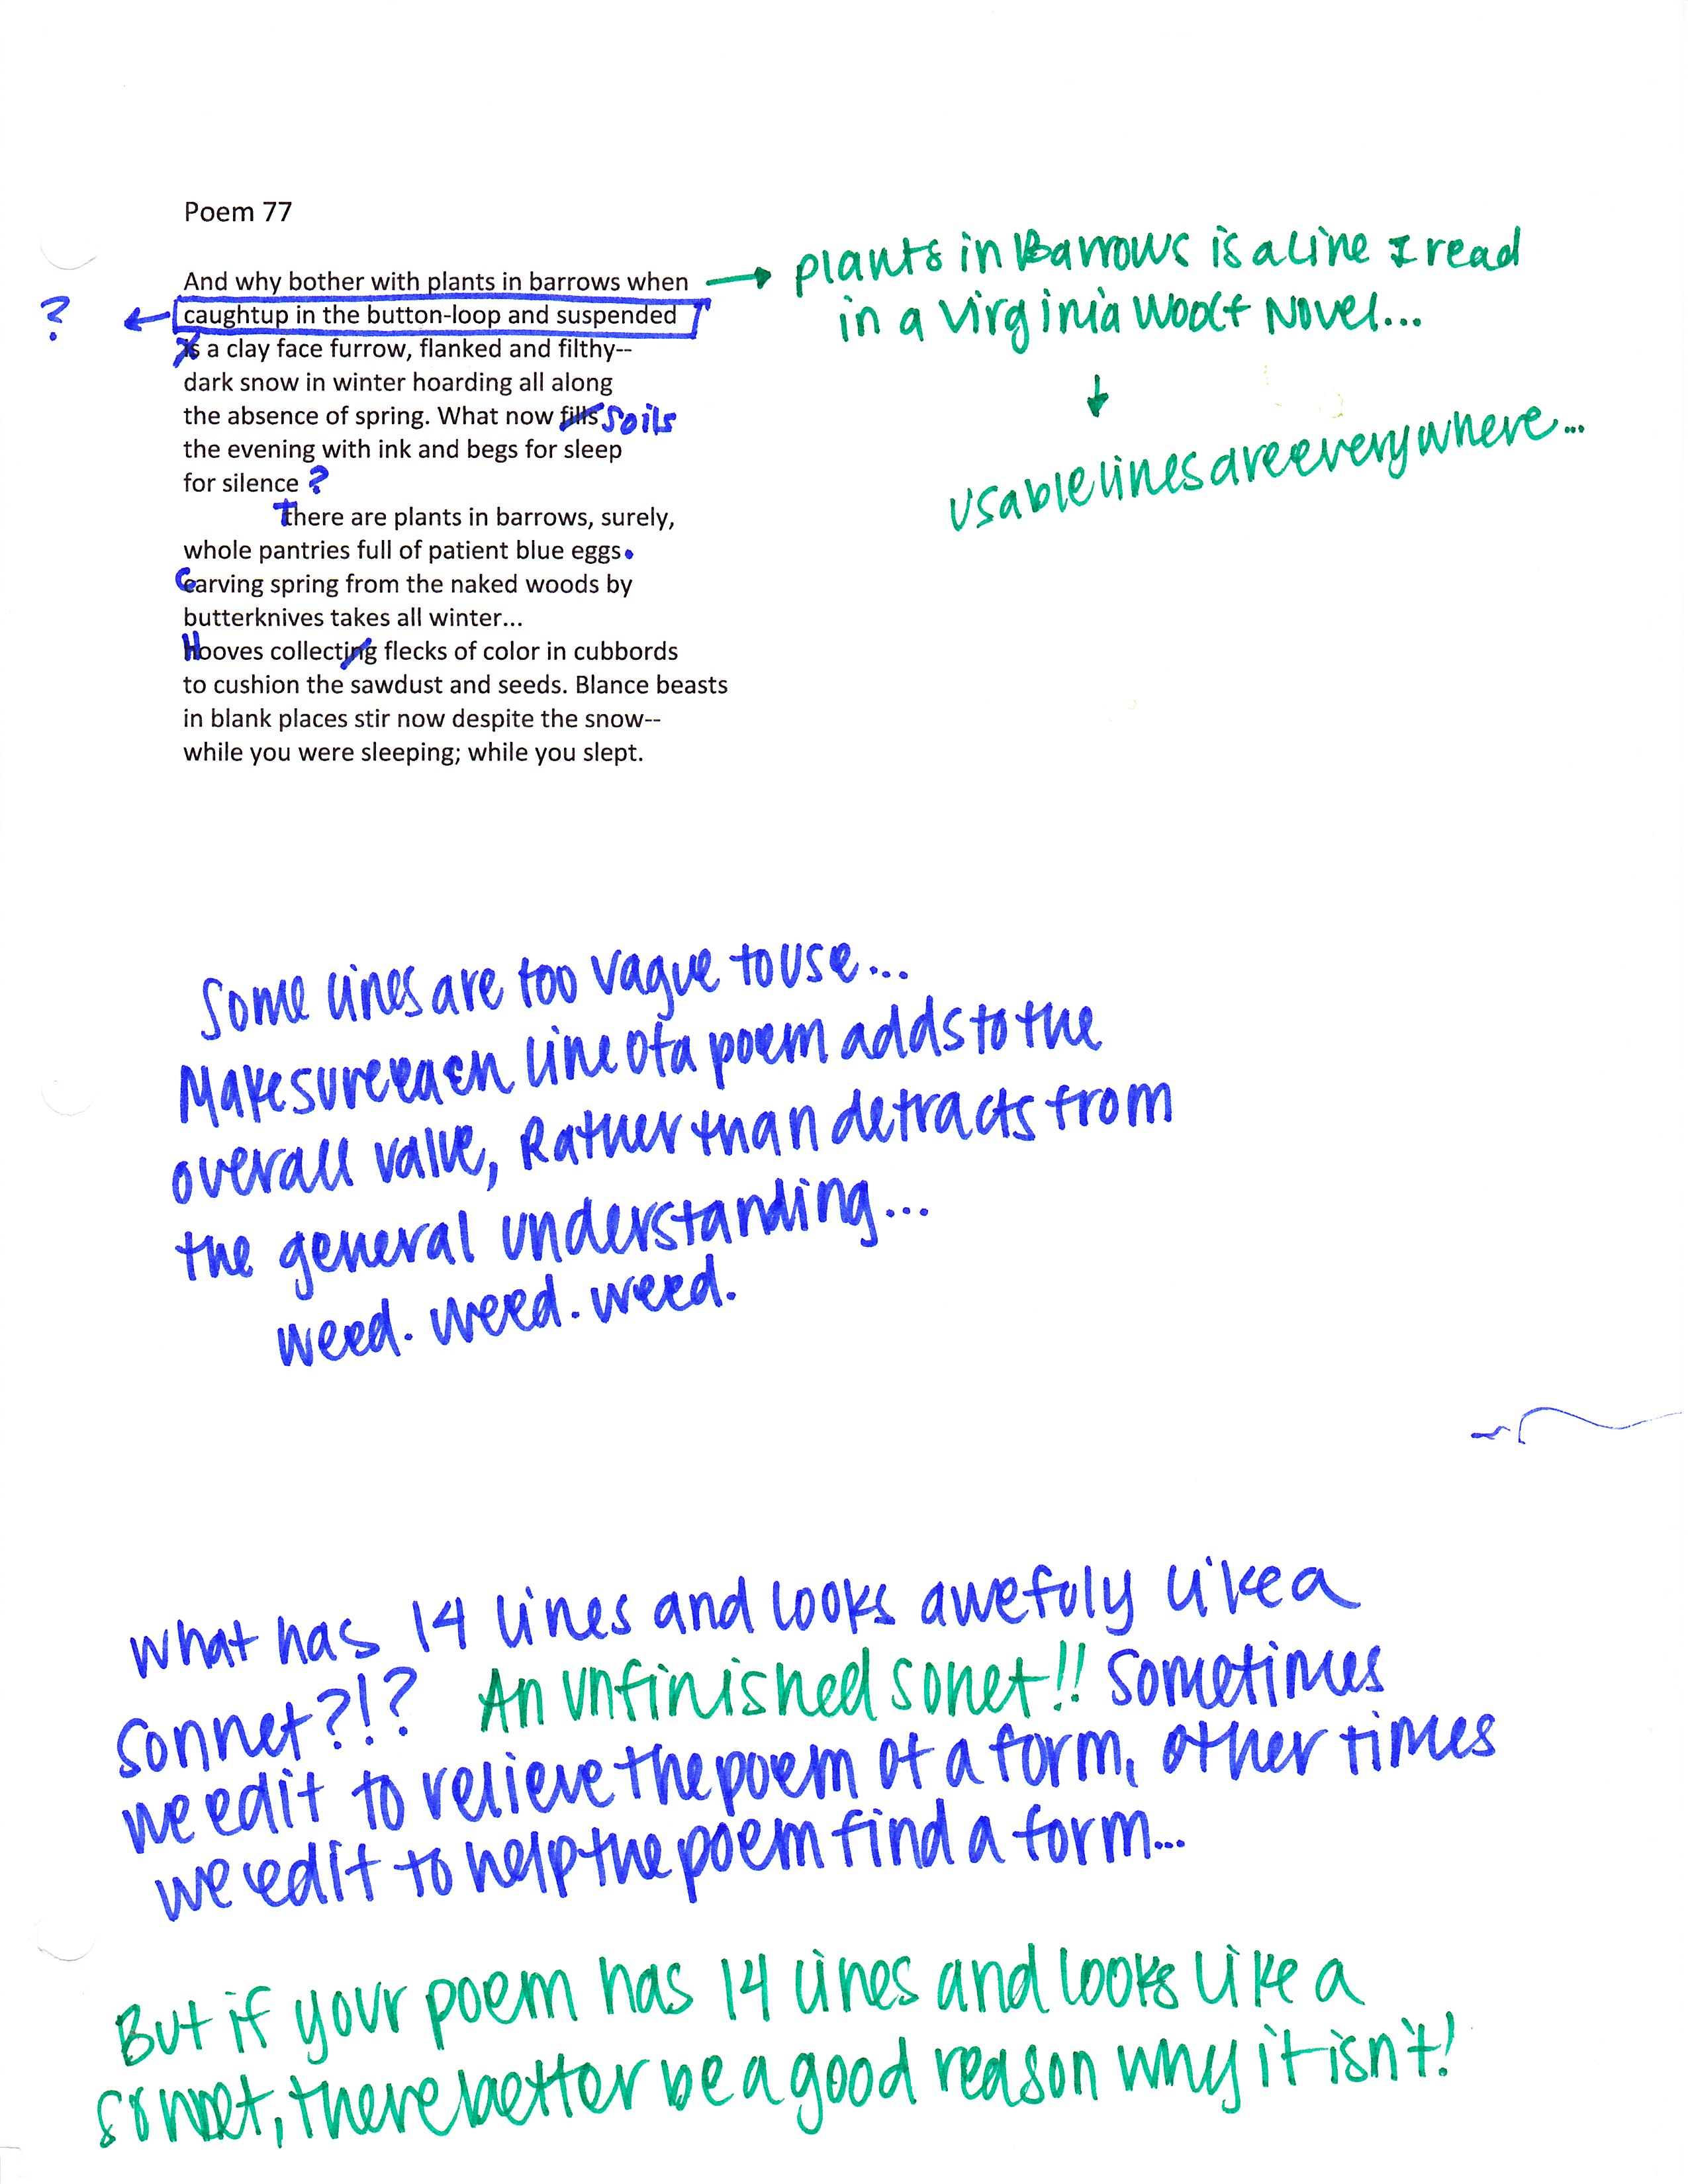 Poem 77
And why bother with plants in barrows when
caughtup in the button-loop and suspended
is a clay face furrow, flanked and filthy--
dark snow in winter hoarding all along
the absence of spring. What now fills soils
the evening with ink and begs for sleep
for silence ?
There are plants in barrows, surely,
whole pantries full of patient blue eggs.
Carving spring from the naked woods by
butterknives takes all winter...
Hooves collecting flecks of color in cubbords
to cushion the sawdust and seeds. Blance beasts
in blank places stir now despite the snow--
while you were sleeping; while you slept.
?
plants in Barrows is a line I read
in a Virginia Woolf Novel...
usable lines are everywhere...
Some lines are too vague to use...
Make sure each line of a poem adds to the
overall value, Rather than detracts from
the general understanding...
weed. weed. weed.
What has 14 lines and looks awefuly like a
sonnet?!? An unfinished sonet!! Sometimes
we edit to relieve the poem of a form, other times
we edit to help the poem find a form...
But if your poem has 14 lines and looks like a
sonnet, there better be a good reason why it isn't!